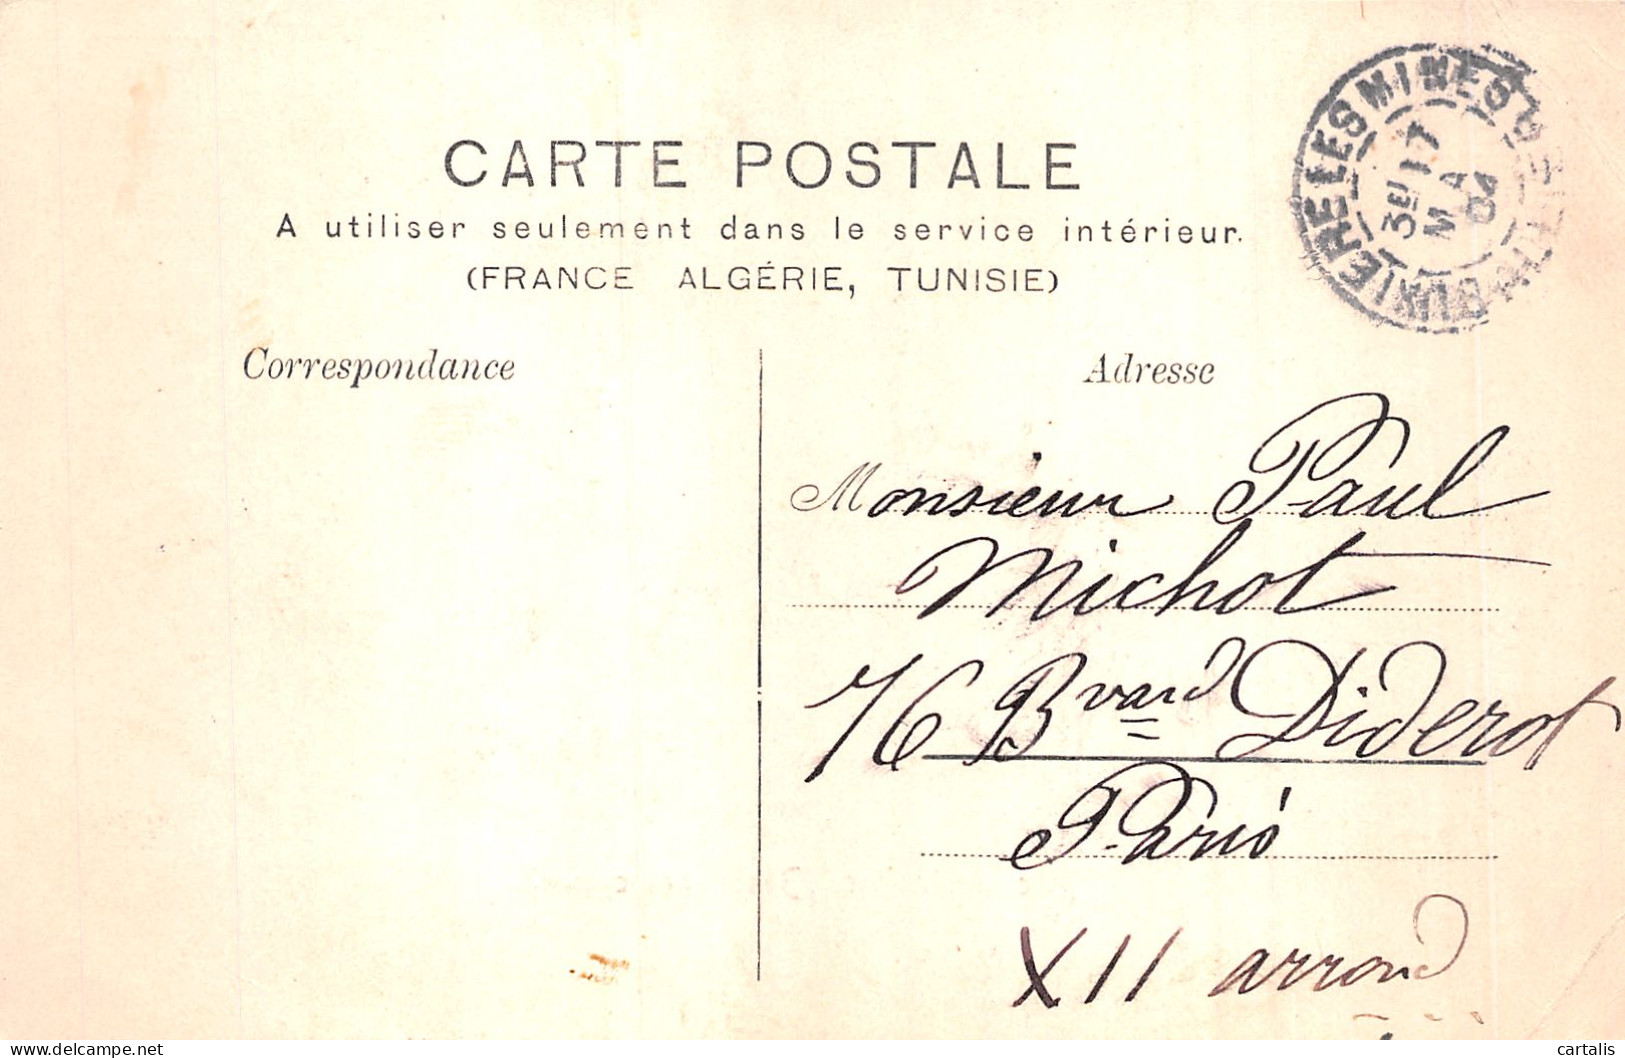 CARTE POSTALE
A utiliser seulement dans le service intérieur.
(FRANCE ALGÉRIE, TUNISIE)
LES MINES
3E 17
MA
04
Correspondance
Adresse
Monsieur Paul
Michot
76 Bvard Diderot
Paris
XII arrond
cartalis